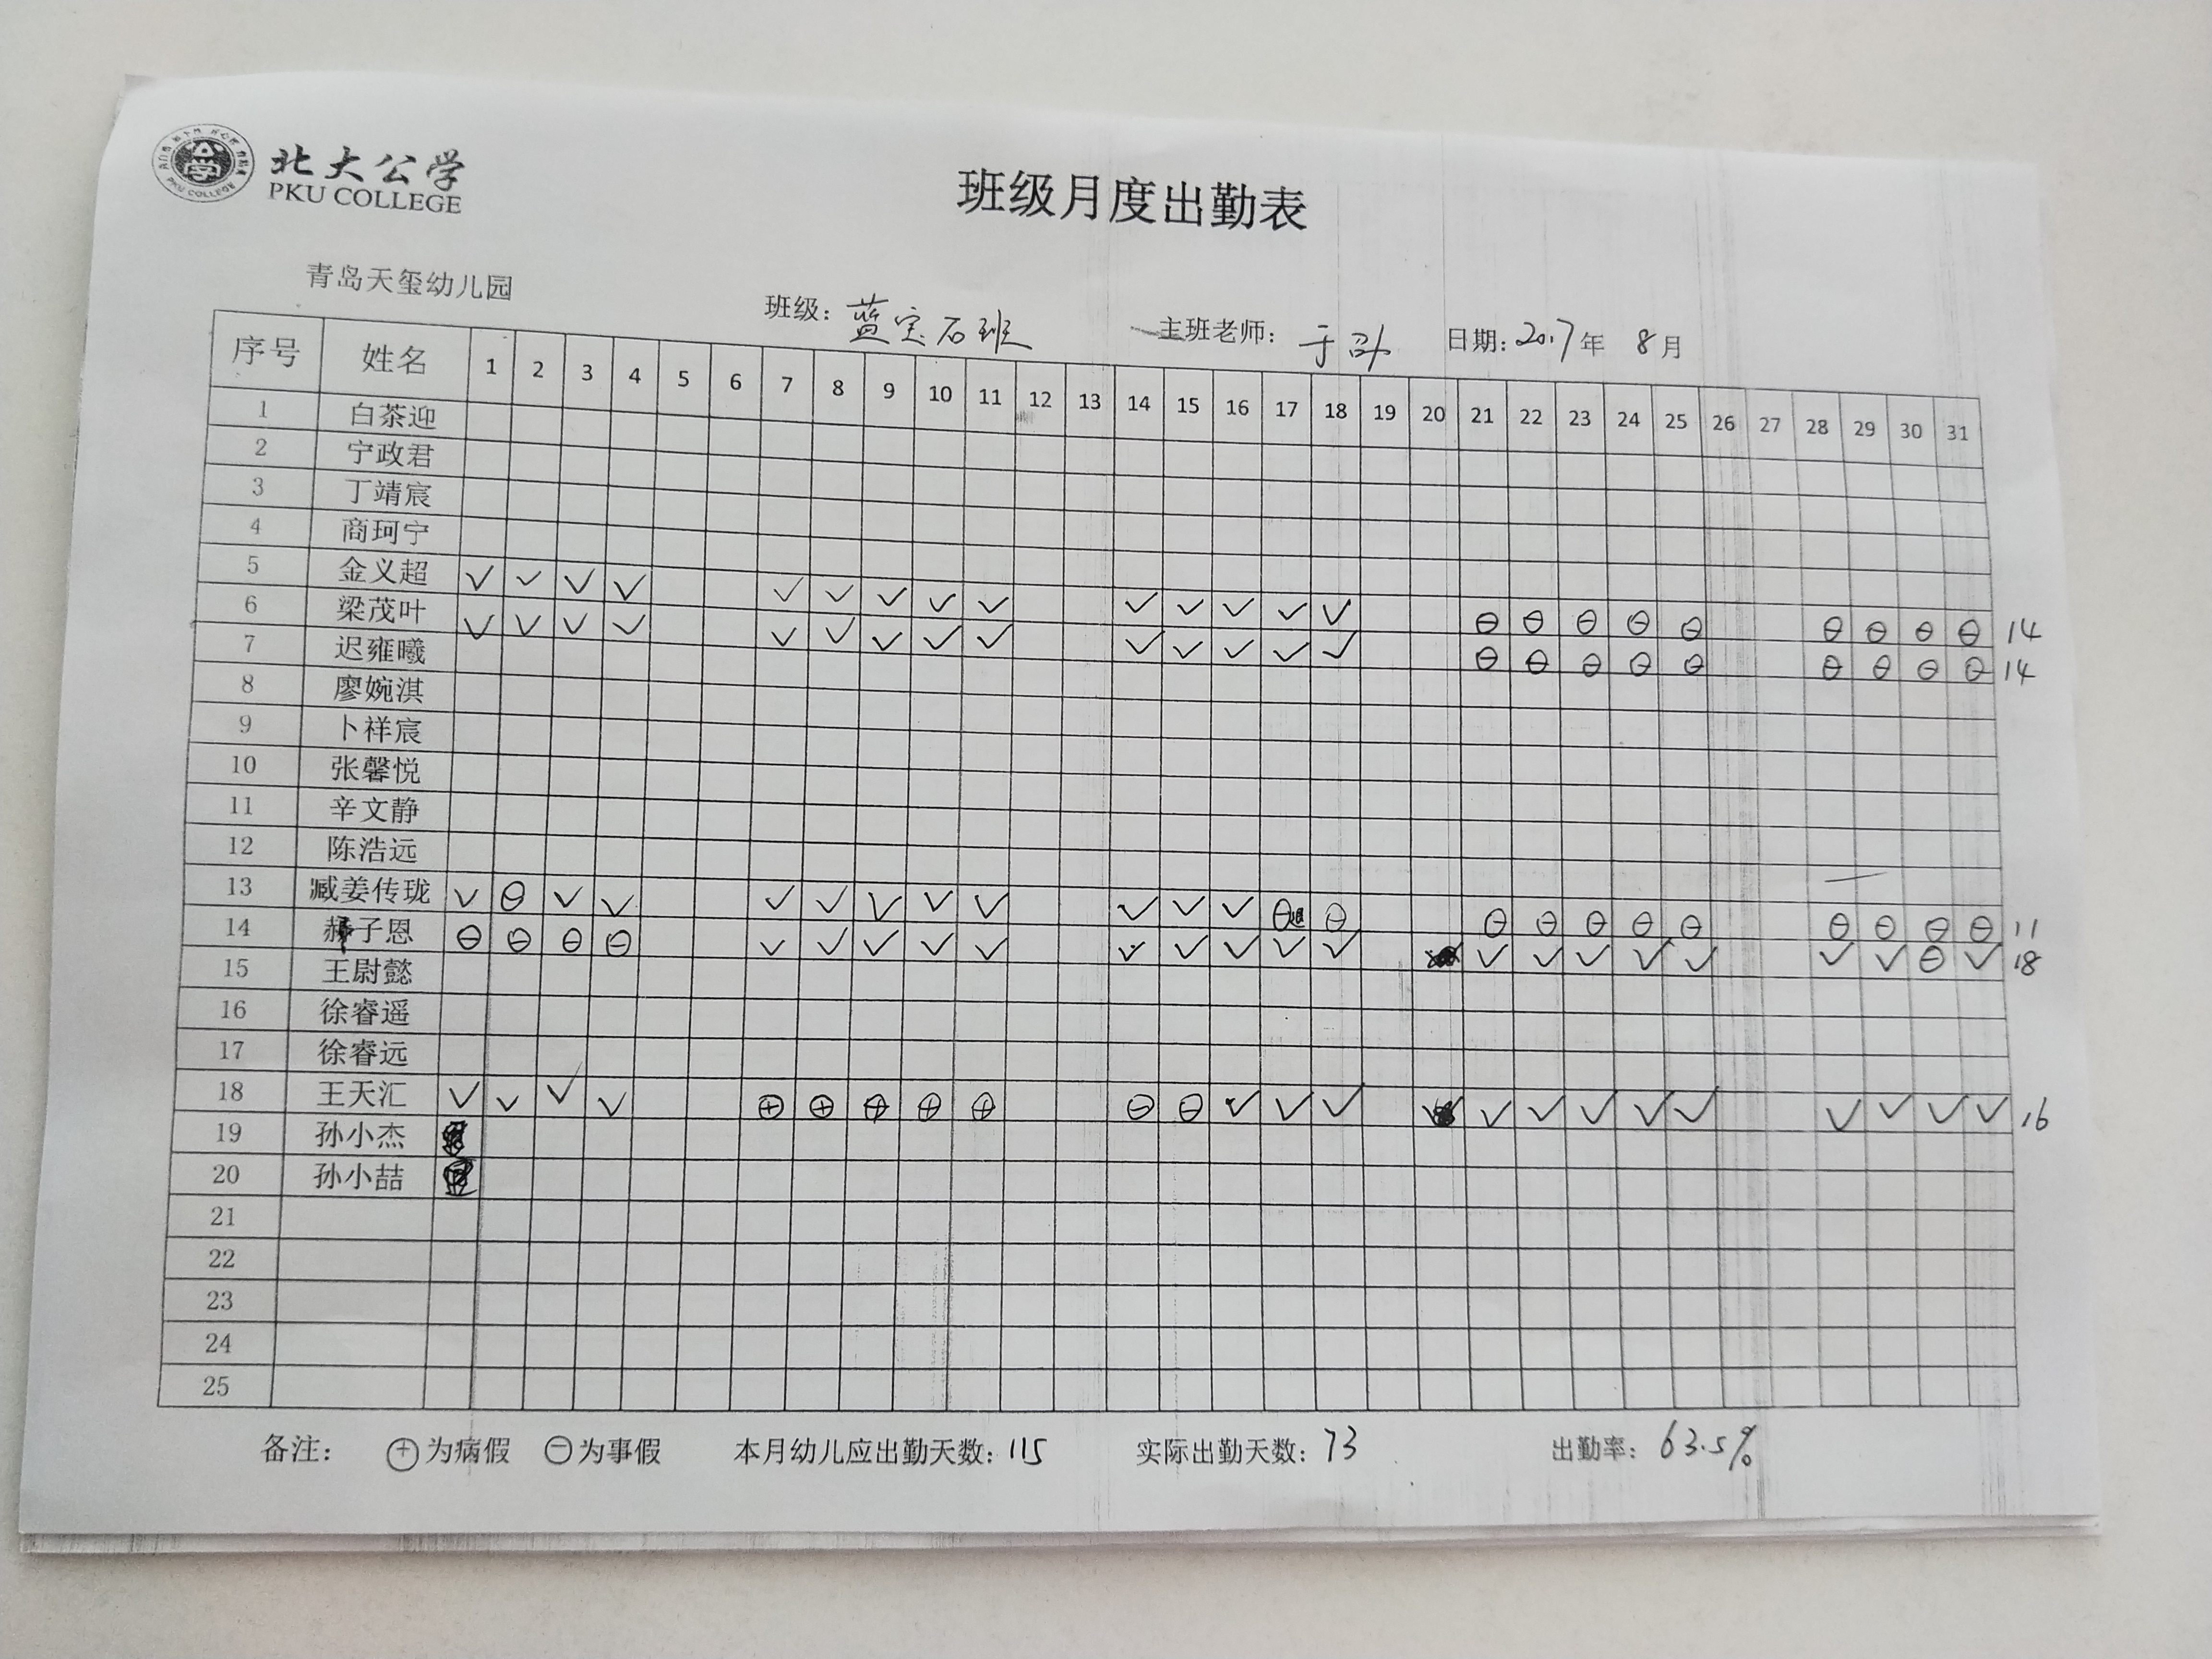 北大公学
PKU COLLEGE
班级月度出勤表
青岛天玺幼儿园
班级: 蓝宝石班 主班老师: 日期: 2017年 8月
序号 姓名 1 2 3 4 5 6 7 8 9 10 11 12 13 14 15 16 17 18 19 20 21 22 23 24 25 26 27 28 29 30 31
1 白茶迎
2 宁政君
3 丁靖宸
4 商珂宁
5 金义超 √ √ √ √ √ √ √ √ √ √ √ √ √ √ ⊖ ⊖ ⊖ ⊖ ⊖ ⊖ ⊖ ⊖ ⊖ 14
6 梁茂叶 √ √ √ √ √ √ √ √ √ √ √ √ √ √ ⊖ ⊖ ⊖ ⊖ ⊖ ⊖ ⊖ ⊖ ⊖ 14
7 迟雍曦
8 廖婉淇
9 卜祥宸
10 张馨悦
11 辛文静
12 陈浩远
13 臧姜传珑 √ ⊖ √ √ √ √ √ √ √ √ √ √ ⊖ ⊖ ⊖ ⊖ ⊖ ⊖ ⊖ ⊖ ⊖ ⊖ ⊖ 11
14 子恩 ⊖ ⊖ ⊖ ⊖ √ √ √ √ √ √ √ √ √ √ √ √ √ √ √ √ √ ⊖ √ 18
15 王尉懿
16 徐睿遥
17 徐睿远
18 王天汇 √ √ √ √ ⊕ ⊕ ⊕ ⊕ ⊕ ⊖ ⊖ √ √ √ √ √ √ √ √ √ √ √ √ 16
19 孙小杰
20 孙小喆
21
22
23
24
25
备注: ⊕为病假 ⊖为事假 本月幼儿应出勤天数: 115 实际出勤天数: 73 出勤率: 63.5%